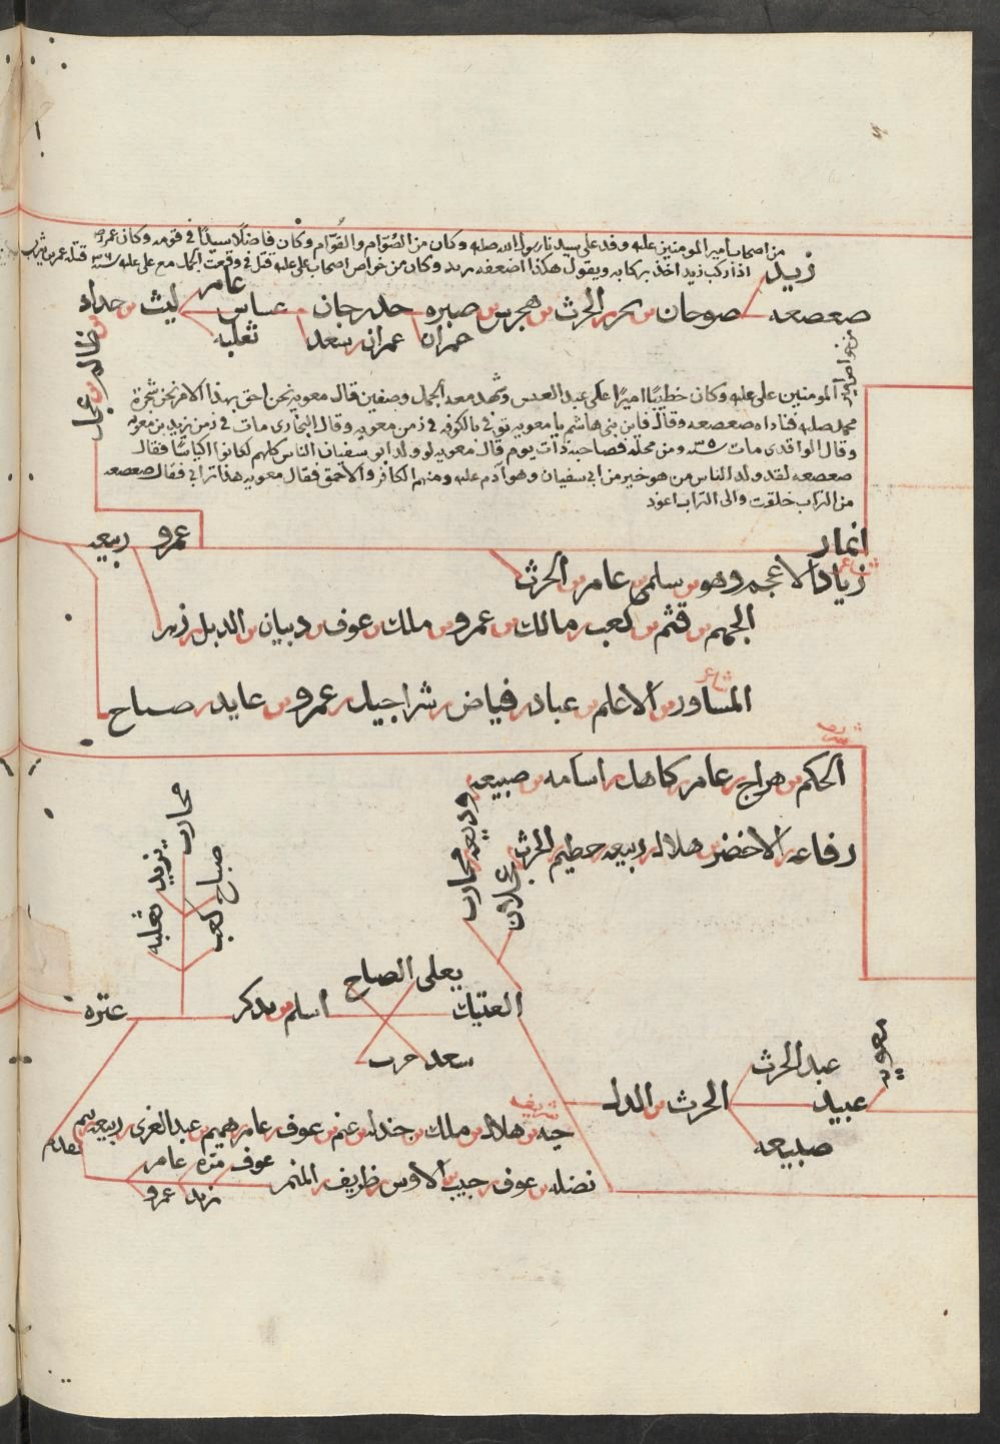 من اصحاب امير المومنين عليه وفد على سيدنا رسول الله صلعم وكان من الصُوّام والقُوّام وكان فاضلًا سيدًا في قومه وكان عمر
اذا ركب زيد اخذ بركابه ويقول هكذا اصنعوا بزيد وكان من خواص اصحاب علي عليه قتل في وقعت الجمل مع علي عليه سنه ٣٦ قتله عمرو بن يثرب
زيد
صعصعه صوحان بن حجر الحرث بن هجرس بن صبره حدرجان عساس ليث بن حداد
عامر
ثعلبه
عمران عمران سعد
بن ظالم بن عجل
من خواص امير
المومنين علي عليه وكان خطيبًا اميرًا على عبد القيس وشهد معه الجمل وصفين قال معويه نحن احق بهذا الامر نحن شجرة
محمد صلعم فناداه صعصعه وقال فاين بني هاشم يا معويه توفي بالكوفه في زمن معويه وقال البخاري مات في زمن يزيد بن معويه
وقال الواقدي مات سنه ومن محله فصاحبه ذات يوم قال معويه لو ولد ابو سفيان الناس كلهم لكانوا اكياسًا فقال
صعصعه لقد ولد الناس من هو خير من ابي سفيان وهو آدم عليه ومنهم الكافر والاحمق فقال معويه هذا ترابي فقال صعصعه
من التراب خلقت والى التراب اعود
انمار
عمرو ربيعه
شاعر
زياد الاعجم وهو بن سلمى بن عامر بن الحرث
الجهم بن قثم بن كعب بن مالك بن عمرو بن ملك بن عوف بن دبيان بن الديل
شاعر
المساور بن الاعلم بن عباد فياض شراحيل عمرو بن عايد صباح
شريف
الحكم بن هراج عامر كاهل اسامه بن صبيعه
رفاعه الاخضر هلال ربيعه حطيم الحرث
وديعه محارب
عجلان
محارب
يزيد
صباح
ثعلبه
كعب
يعلى الصباح
العتيك اسلم بن يدكر عنزه
سعد حرب
معويه
عبد الحرث
عبيد
صبيعه
الحرث بن الدل
شريف
حيه بن هلال بن ملك بن جندل بن غنم بن عوف عامر هميم بن عبد العزى ربيعه تيم
يقدم
نضله بن عوف حبيب الاوس ظريف النمر
عوف مره عامر
زيد عمرو